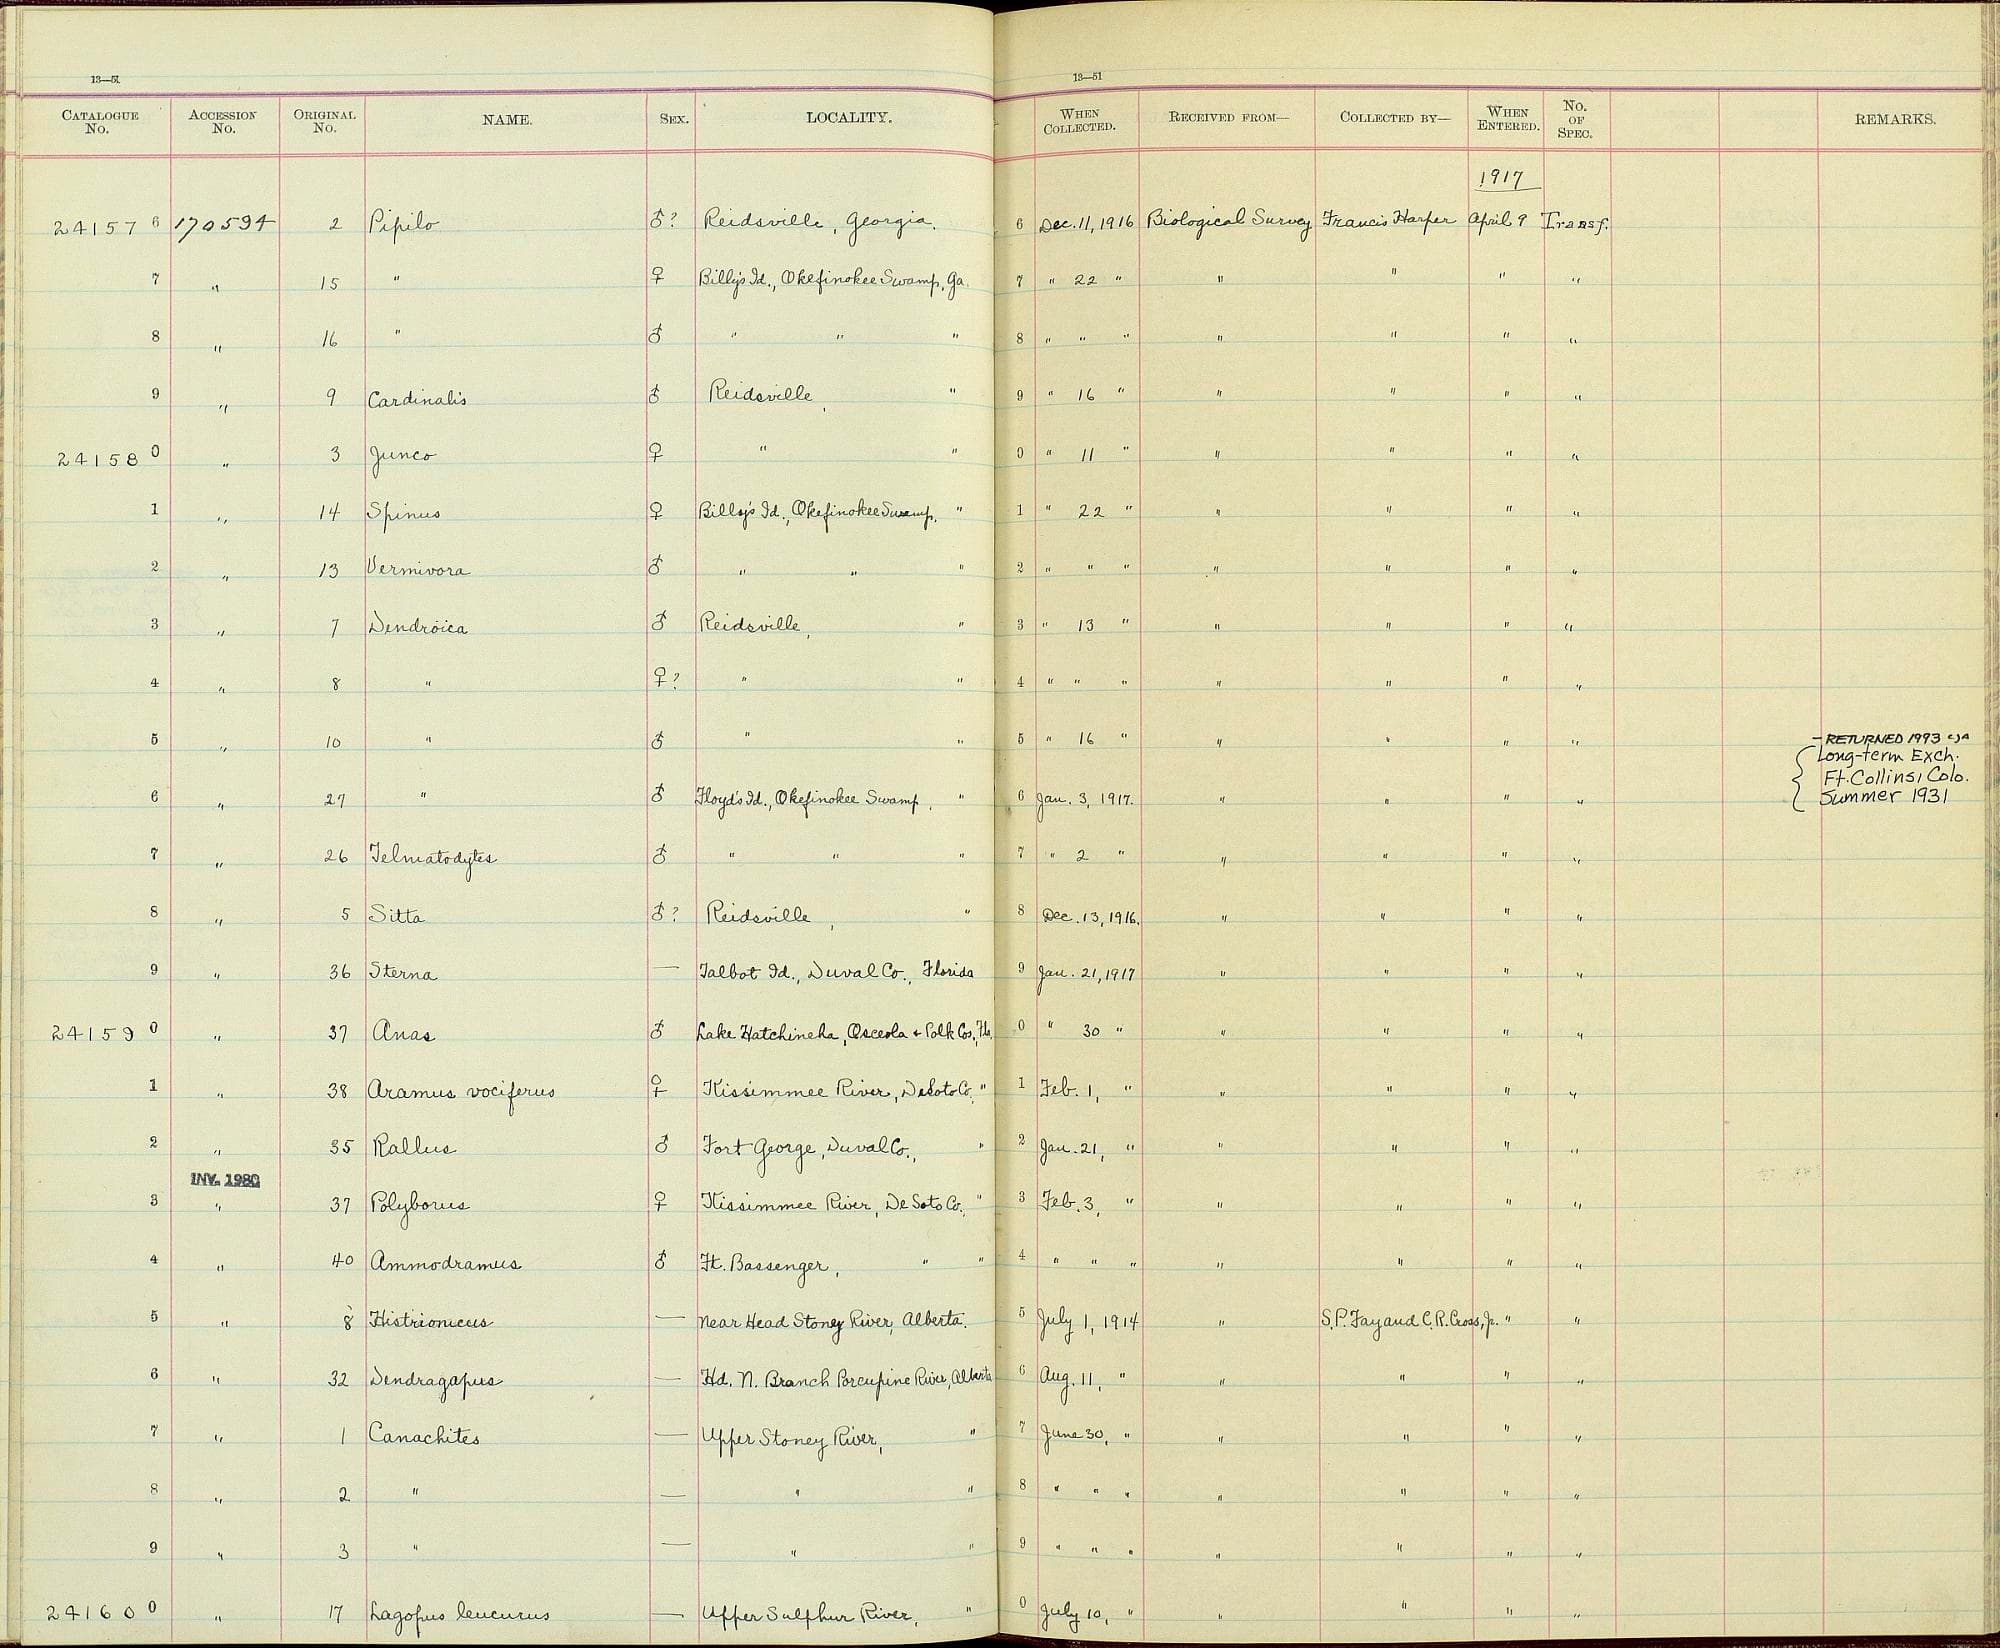 13—51
13—51
CATALOGUE No. ACCESSION No. ORIGINAL No. NAME. SEX. LOCALITY. WHEN COLLECTED. RECEIVED FROM— COLLECTED BY— WHEN ENTERED. No. OF SPEC. REMARKS.
1917
241576 170594 2 Pipilo ♂? Reidsville, Georgia. 6 Dec. 11, 1916 Biological Survey Francis Harper April 9 Transf.
7 " 15 " ♀ Billy's Id., Okefinokee Swamp, Ga. 7 " 22 " " " " "
8 " 16 " ♂ " " " 8 " " " " " " "
9 " 9 Cardinalis ♂ Reidsville, " 9 " 16 " " " " "
241580 " 3 Junco ♀ " " 0 " 11 " " " " "
1 " 14 Spinus ♀ Billy's Id., Okefinokee Swamp, " 1 " 22 " " " " "
2 " 13 Vermivora ♂ " " " 2 " " " " " " "
3 " 7 Dendroica ♂ Reidsville, " 3 " 13 " " " " "
4 " 8 " ♀? " " 4 " " " " " " "
5 " 10 " ♂ " " 5 " 16 " " " " " – RETURNED 1993
Long-term Exch.
Ft. Collins, Colo.
6 " 27 " ♂ Floyd's Id., Okefinokee Swamp, " 6 Jan. 3, 1917. " " " " Summer 1931
7 " 26 Telmatodytes ♂ " " " 7 " 2 " " " " "
8 " 5 Sitta ♂? Reidsville, " 8 Dec. 13, 1916. " " " "
9 " 36 Sterna — Talbot Id., Duval Co., Florida 9 Jan. 21, 1917 " " " "
241590 " 37 Anas ♂ Lake Hatchineha, Osceola + Polk Cos., Fla. 0 " 30 " " " " "
1 " 38 Aramus vociferus ♀ Kissimmee River, DeSoto Co., " 1 Feb. 1, " " " " "
2 " 35 Rallus ♂ Fort George, Duval Co., " 2 Jan. 21, " " " " "
INV. 1980
3 " 37 Polyborus ♀ Kissimmee River, De Soto Co., " 3 Feb. 3, " " " " "
4 " 40 Ammodramus ♂ Ft. Bassenger, " " 4 " " " " " " "
5 " 8 Histrionicus — Near Head Stoney River, Alberta. 5 July 1, 1914 " S.P. Fay and C.R. Cross, Jr. " "
6 " 32 Dendragapus — Hd. N. Branch Porcupine River, Alberta 6 Aug. 11, " " " " "
7 " 1 Canachites — Upper Stoney River, " 7 June 30, " " " " "
8 " 2 " — " " 8 " " " " " " "
9 " 3 " — " " 9 " " " " " " "
241600 " 17 Lagopus leucurus — Upper Sulphur River, " 0 July 10, " " " " "